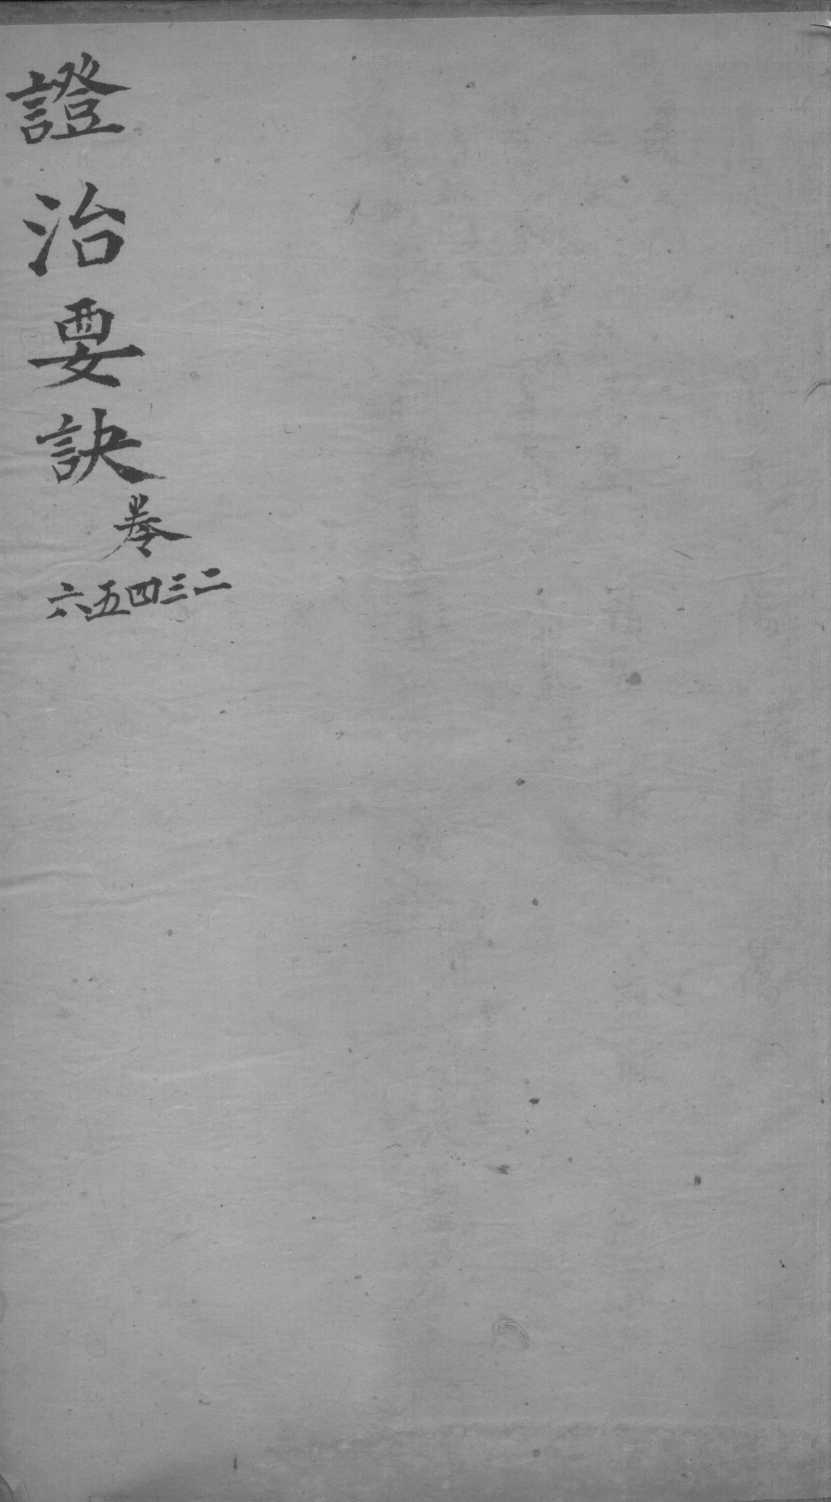 證治要訣卷
二三四五六